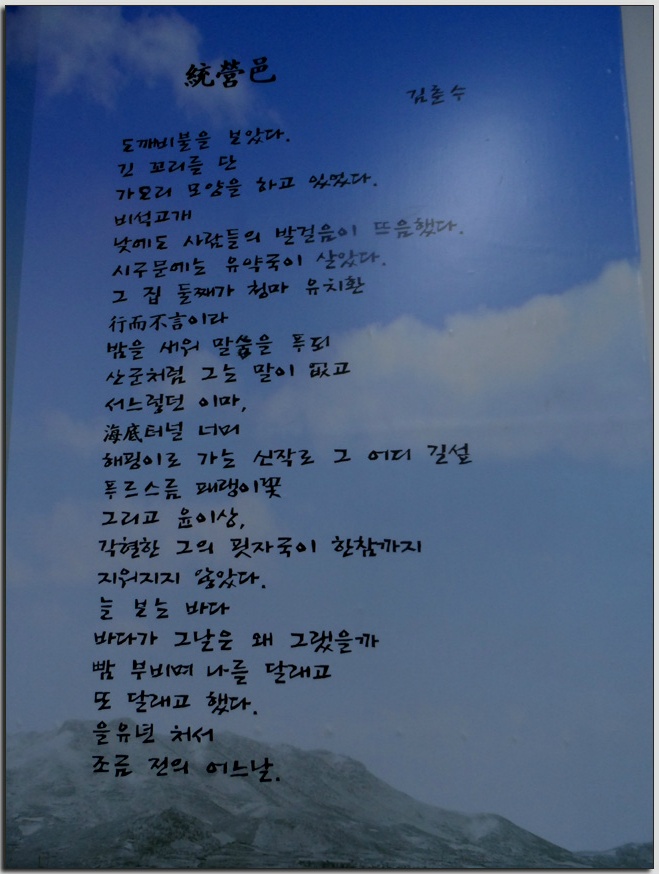 統營邑
김춘수
도깨비불을 보았다.
긴 꼬리를 단
가오리 모양을 하고 있었다.
비석고개
낮에도 사람들의 발걸음이 뜨음했다.
시구문에는 유약국이 살았다.
그 집 둘째가 청마 유치환
行而不言이라
밤을 새워 말씀을 푸되
산군처럼 그는 말이 없고
서느렇던 이마,
海底터널 너머
해핑이로 가는 신작로 그 어디 길섶
푸르스름 패랭이꽃
그리고 윤이상,
각혈한 그의 핏자국이 한참까지
지워지지 않았다.
늘 보는 바다
바다가 그날은 왜 그랬을까
뺨 부비며 나를 달래고
또 달래고 했다.
을유년 처서
조금 전의 어느날.